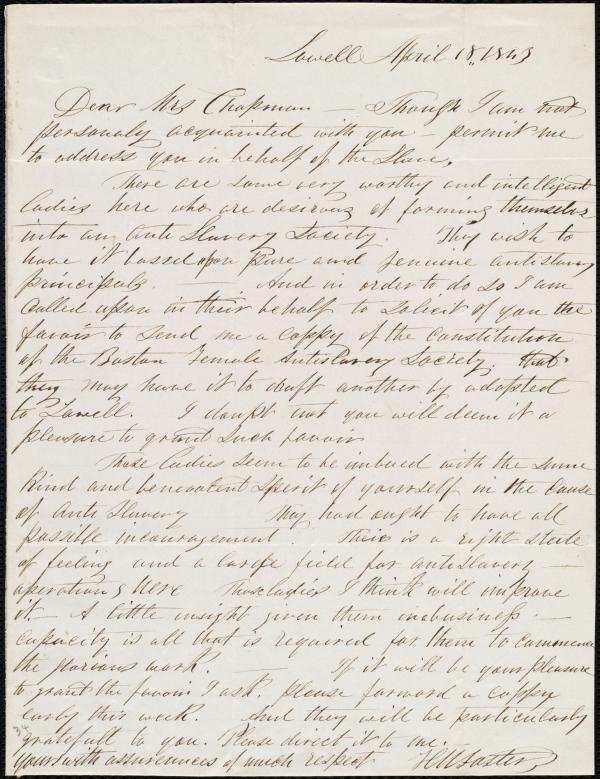 Lowell April 18, 1843
Dear Mrs Chapman — Though I am not
personaly acquainted with you — permit me
to address you in behalf of the Slave,
There are some very worthy and intelligent
Ladies here who are desirous of forming themselves
into an Anti Slavery Society. They wish to
have it bassed upon pure and genuine antislavery
principals. — And in order to do so I am
called upon in their behalf to solicit of you the
favour to send me a coppy of the constitution
of the Boston Female Antislavery Society. that
they may have it to draft another by adopted
to Lowell. I doupt not you will deem it a
pleasure to grant such favour
Those Ladies seem to be imbued with the same
Kind and benevolent Sperit of yourself in the cause
of Anti Slavery They had ought to have all
possible incouragement. There is a right state
of feeling and a large field for antislavery —
operations Here Those ladies I think will improve
it. — A little insight given them in a business —
capacity is all that is required for them to commence
the glorious work. — If it will be your pleasure
to grant the favour I ask. please forward a coppy
early this week. And they will be particularly
gratefull to you. Please direct it to me.
yours with assurences of much respect H W Foster,